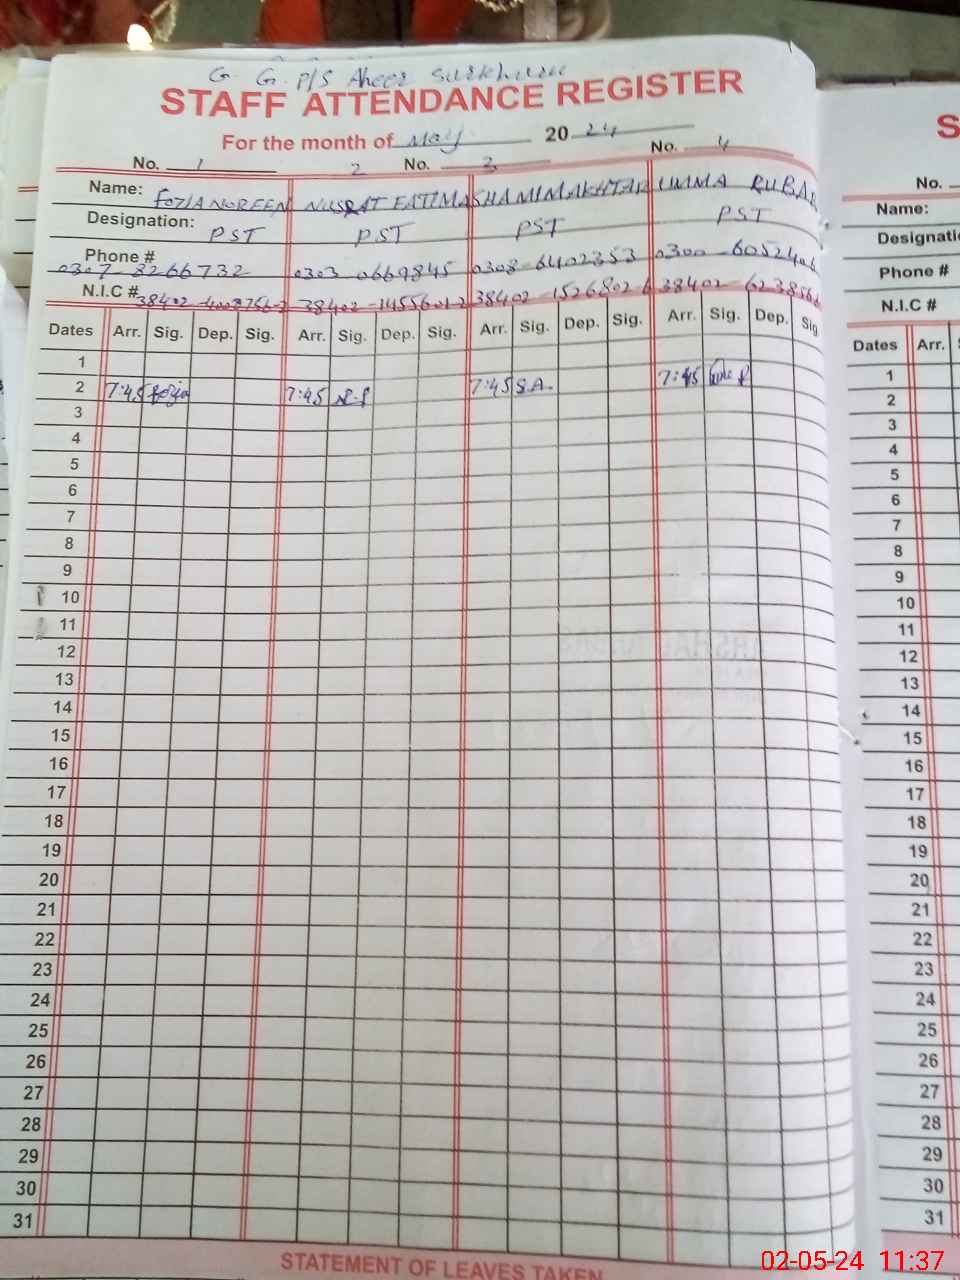 G. G. P/S Aheer Surkhuru
STAFF ATTENDANCE REGISTER
For the month of May 2024
No. 1 2 No. 3 No. 4
Name: FOZIA NOREEN NUSRAT FATIMA SHAMIM AKHTAR UMMA RUBAB
Designation: PST PST PST PST
Phone # 0307-8266732 0303 0669845 0308-6402353 0300-6052406
N.I.C # 38402 38402-1455601-2 38402-1526802-6 38402-
Dates Arr. Sig. Dep. Sig. Arr. Sig. Dep. Sig. Arr. Sig. Dep. Sig. Arr. Sig. Dep. Sig
1
2 7:45 Fozia 7:45 N.F 7:45 S.A. 7:45
3
4
5
6
7
8
9
10
11
12
13
14
15
16
17
18
19
20
21
22
23
24
25
26
27
28
29
30
31
STATEMENT OF LEAVES TAKEN
S
No.
Name:
Designati
Phone #
N.I.C #
Dates Arr.
1
2
3
4
5
6
7
8
9
10
11
12
13
14
15
16
17
18
19
20
21
22
23
24
25
26
27
28
29
30
31
02-05-24 11:37